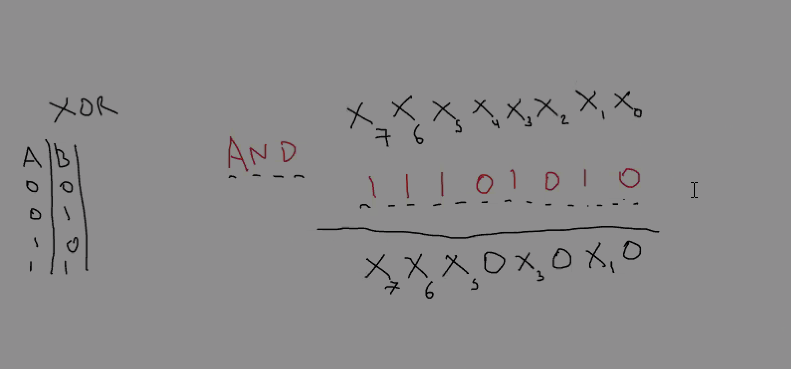 XOR
A B
0 0
0 1
1 0
1 1
X7 X6 X5 X4 X3 X2 X1 X0
AND 1 1 1 0 1 0 1 0
X7 X6 X5 0 X3 0 X1 0